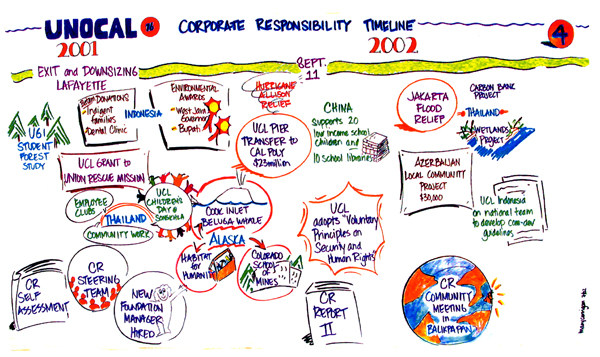 UNOCAL 76 CORPORATE RESPONSIBILITY TIMELINE
4
2001
2002
SEPT.
11
EXIT and DOWNSIZING
LAFAYETTE
Indigent
Families
Dental Clinic
INDONESIA
ENVIRONMENTAL
AWARDS
West Java
Governor
Bupati
HURRICANE
ALLISON
RELIEF
UGI
STUDENT
FOREST
STUDY
UCL PIER
TRANSFER to
CAL POLY
$23 million
CHINA
SUPPORTS 20
low income school
children and
10 school libraries
JAKARTA
FLOOD
RELIEF
CARBON BANK
PROJECT
THAILAND
WETLANDS
PROJECT
UCL GRANT to
UNION RESCUE MISSION
EMPLOYEE
CLUBS
THAILAND
COMMUNITY WORK
UCL
CHILDREN'S
DAY @
COOK INLET
BELUGA WHALE
ALASKA
HABITAT
for
HUMANITY
COLORADO
SCHOOL
of
MINES
UCL
adopts Voluntary
Principles on
Security and
Human Rights
AZERBAIJAN
LOCAL COMMUNITY
PROJECT
$30,000
UCL Indonesia
on national team
to develop com-dev
guidelines
CR
SELF
ASSESSMENT
CR
STEERING
TEAM
NEW
FOUNDATION
MANAGER
HIRED
CR
REPORT
II
CR
COMMUNITY
MEETING
in
BALIKPAPAN